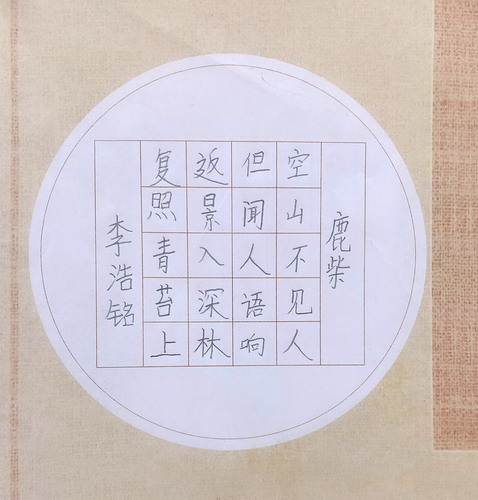 鹿柴
空山不见人
但闻人语响
返景入深林
复照青苔上
李浩铭